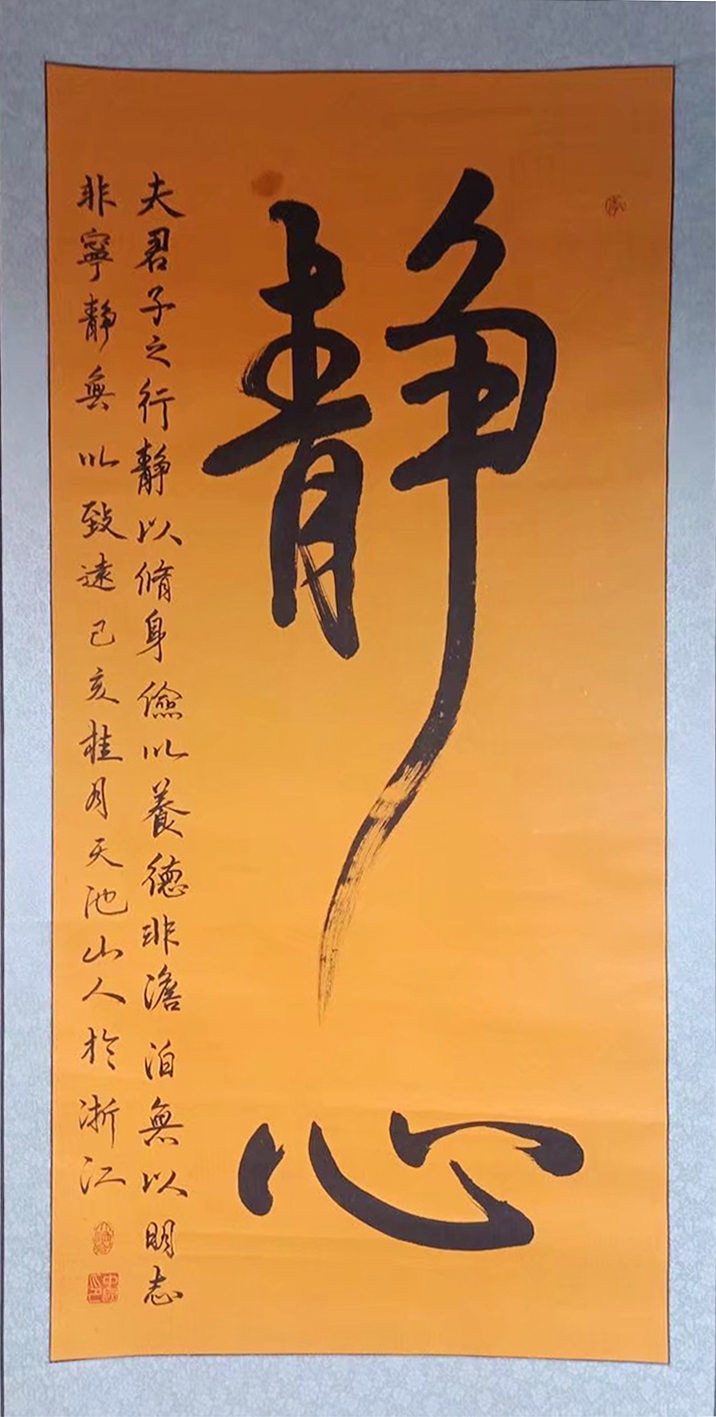 静心
夫君子之行静以脩身儉以養德非澹泊無以明志
非寧静無以致遠己亥桂月天池山人於浙江